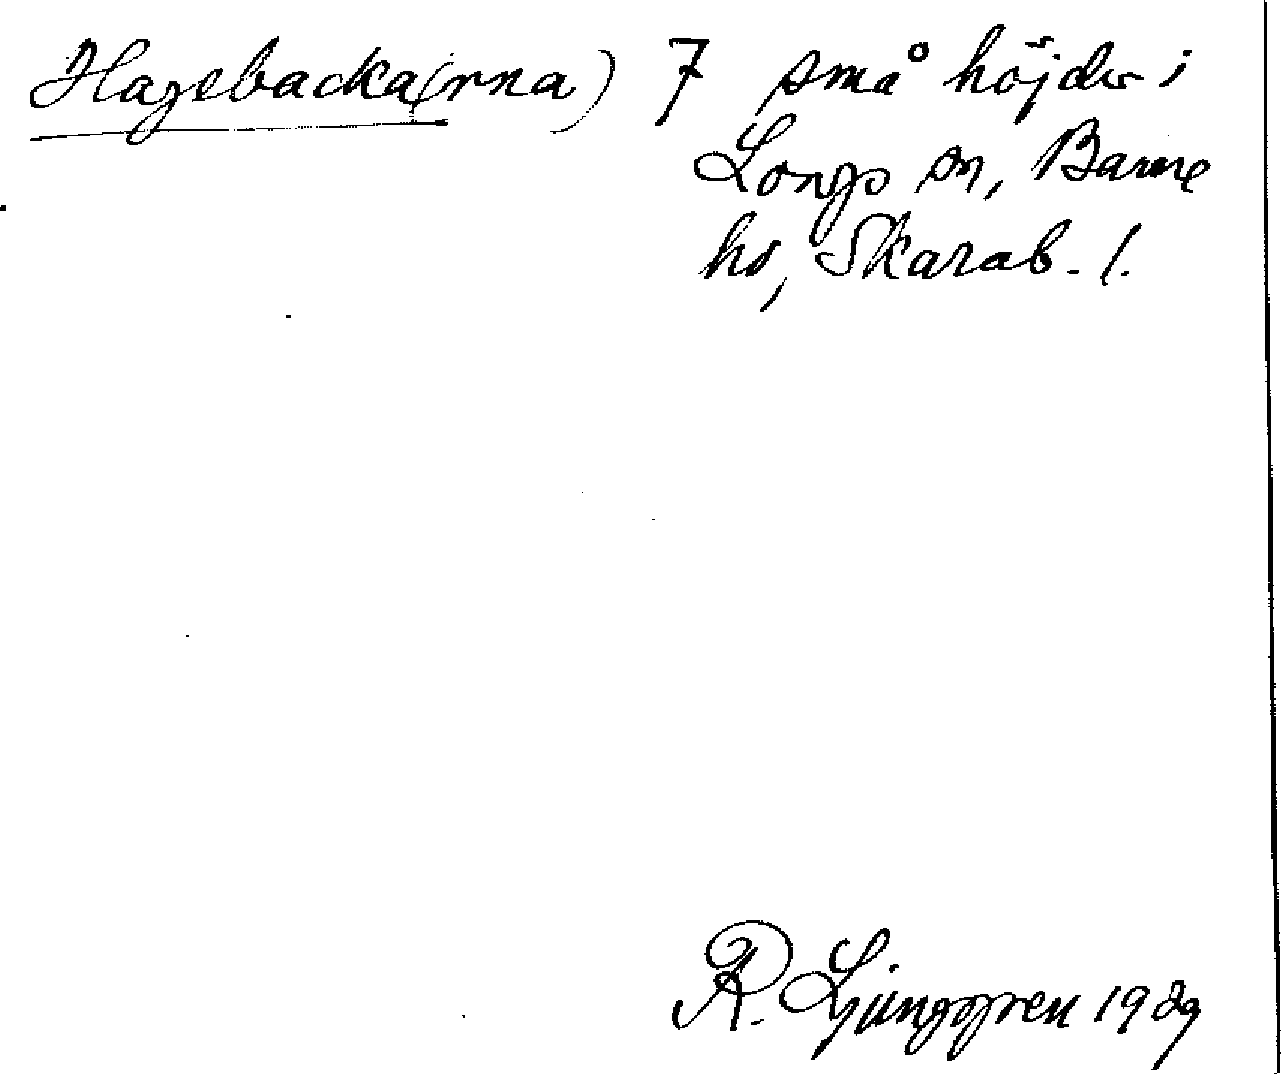 Hagebacka(rna) 7 små höjder i
Longs sn, Barne
hd, Skarab. l.
R. Ljunggren 1929